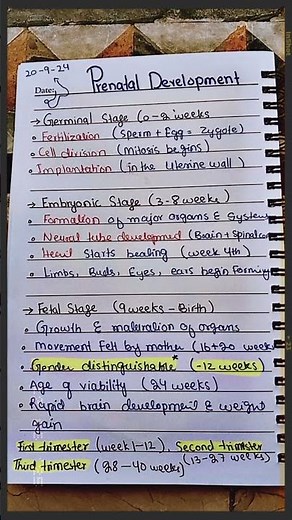 20-9-24
Date:
Prenatal Development
→ Germinal Stage (0-2 weeks
• Fertilization (Sperm + Egg = Zygote)
• Cell division (Mitosis begins)
• Implantation (in the Uterine wall)
→ Embryonic Stage (3-8 weeks)
• Formation of major organs & System
• Neural tube development (Brain + Spinal cor
• Heart Starts beating (week 4th)
• Limbs, Buds, Eyes, ears begin forming
→ Fetal Stage (9 weeks - Birth)
• Growth & maturation of organs
• Movement Felt by mother (16+20 weeks
• Gender distinguishable* (-12 weeks)
• Age of viability (24 weeks)
• Rapid brain development & weight
gain
First trimester (week 1-12), Second trimester
(13-27 weeks)
Third trimester (28-40 weeks)